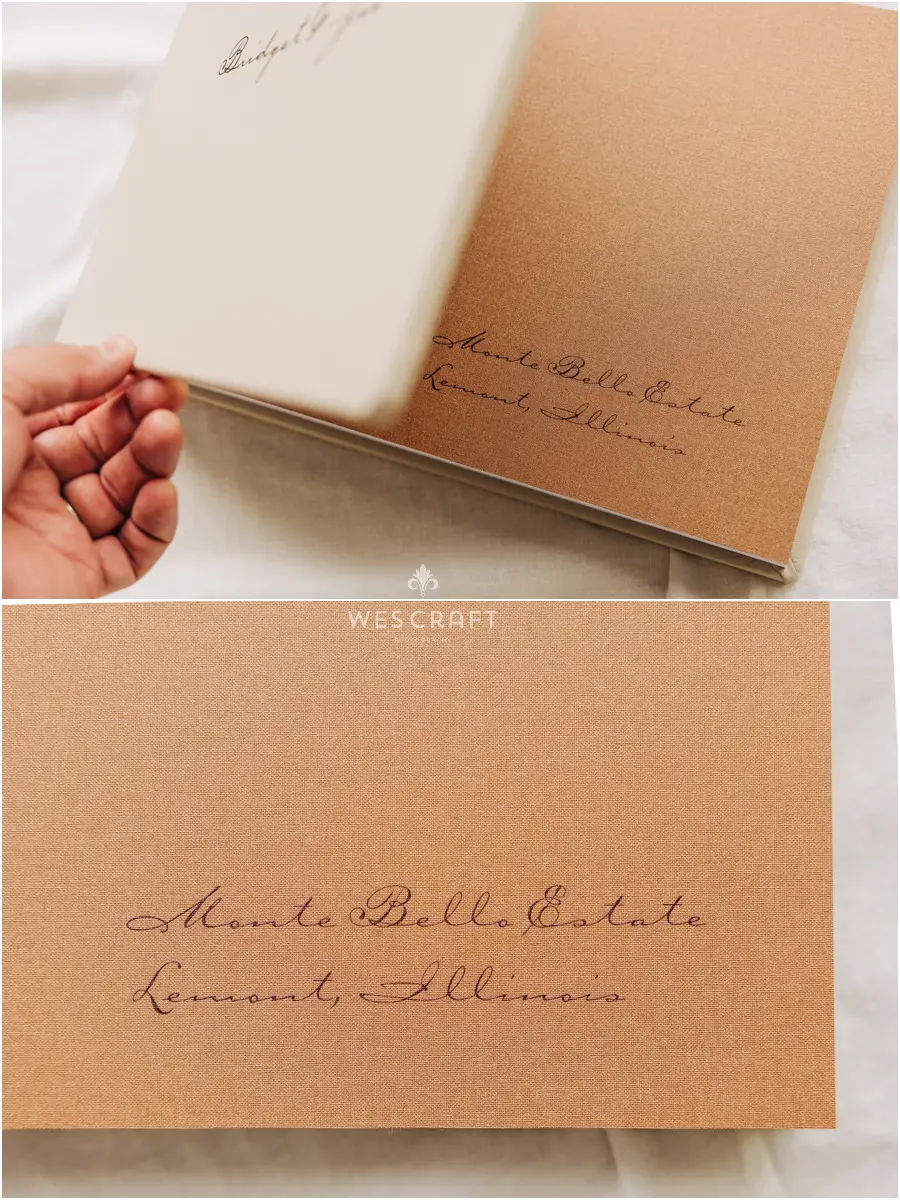 Bridget
Monte Bello Estate
Lemont, Illinois
WES CRAFT
Monte Bello Estate
Lemont, Illinois